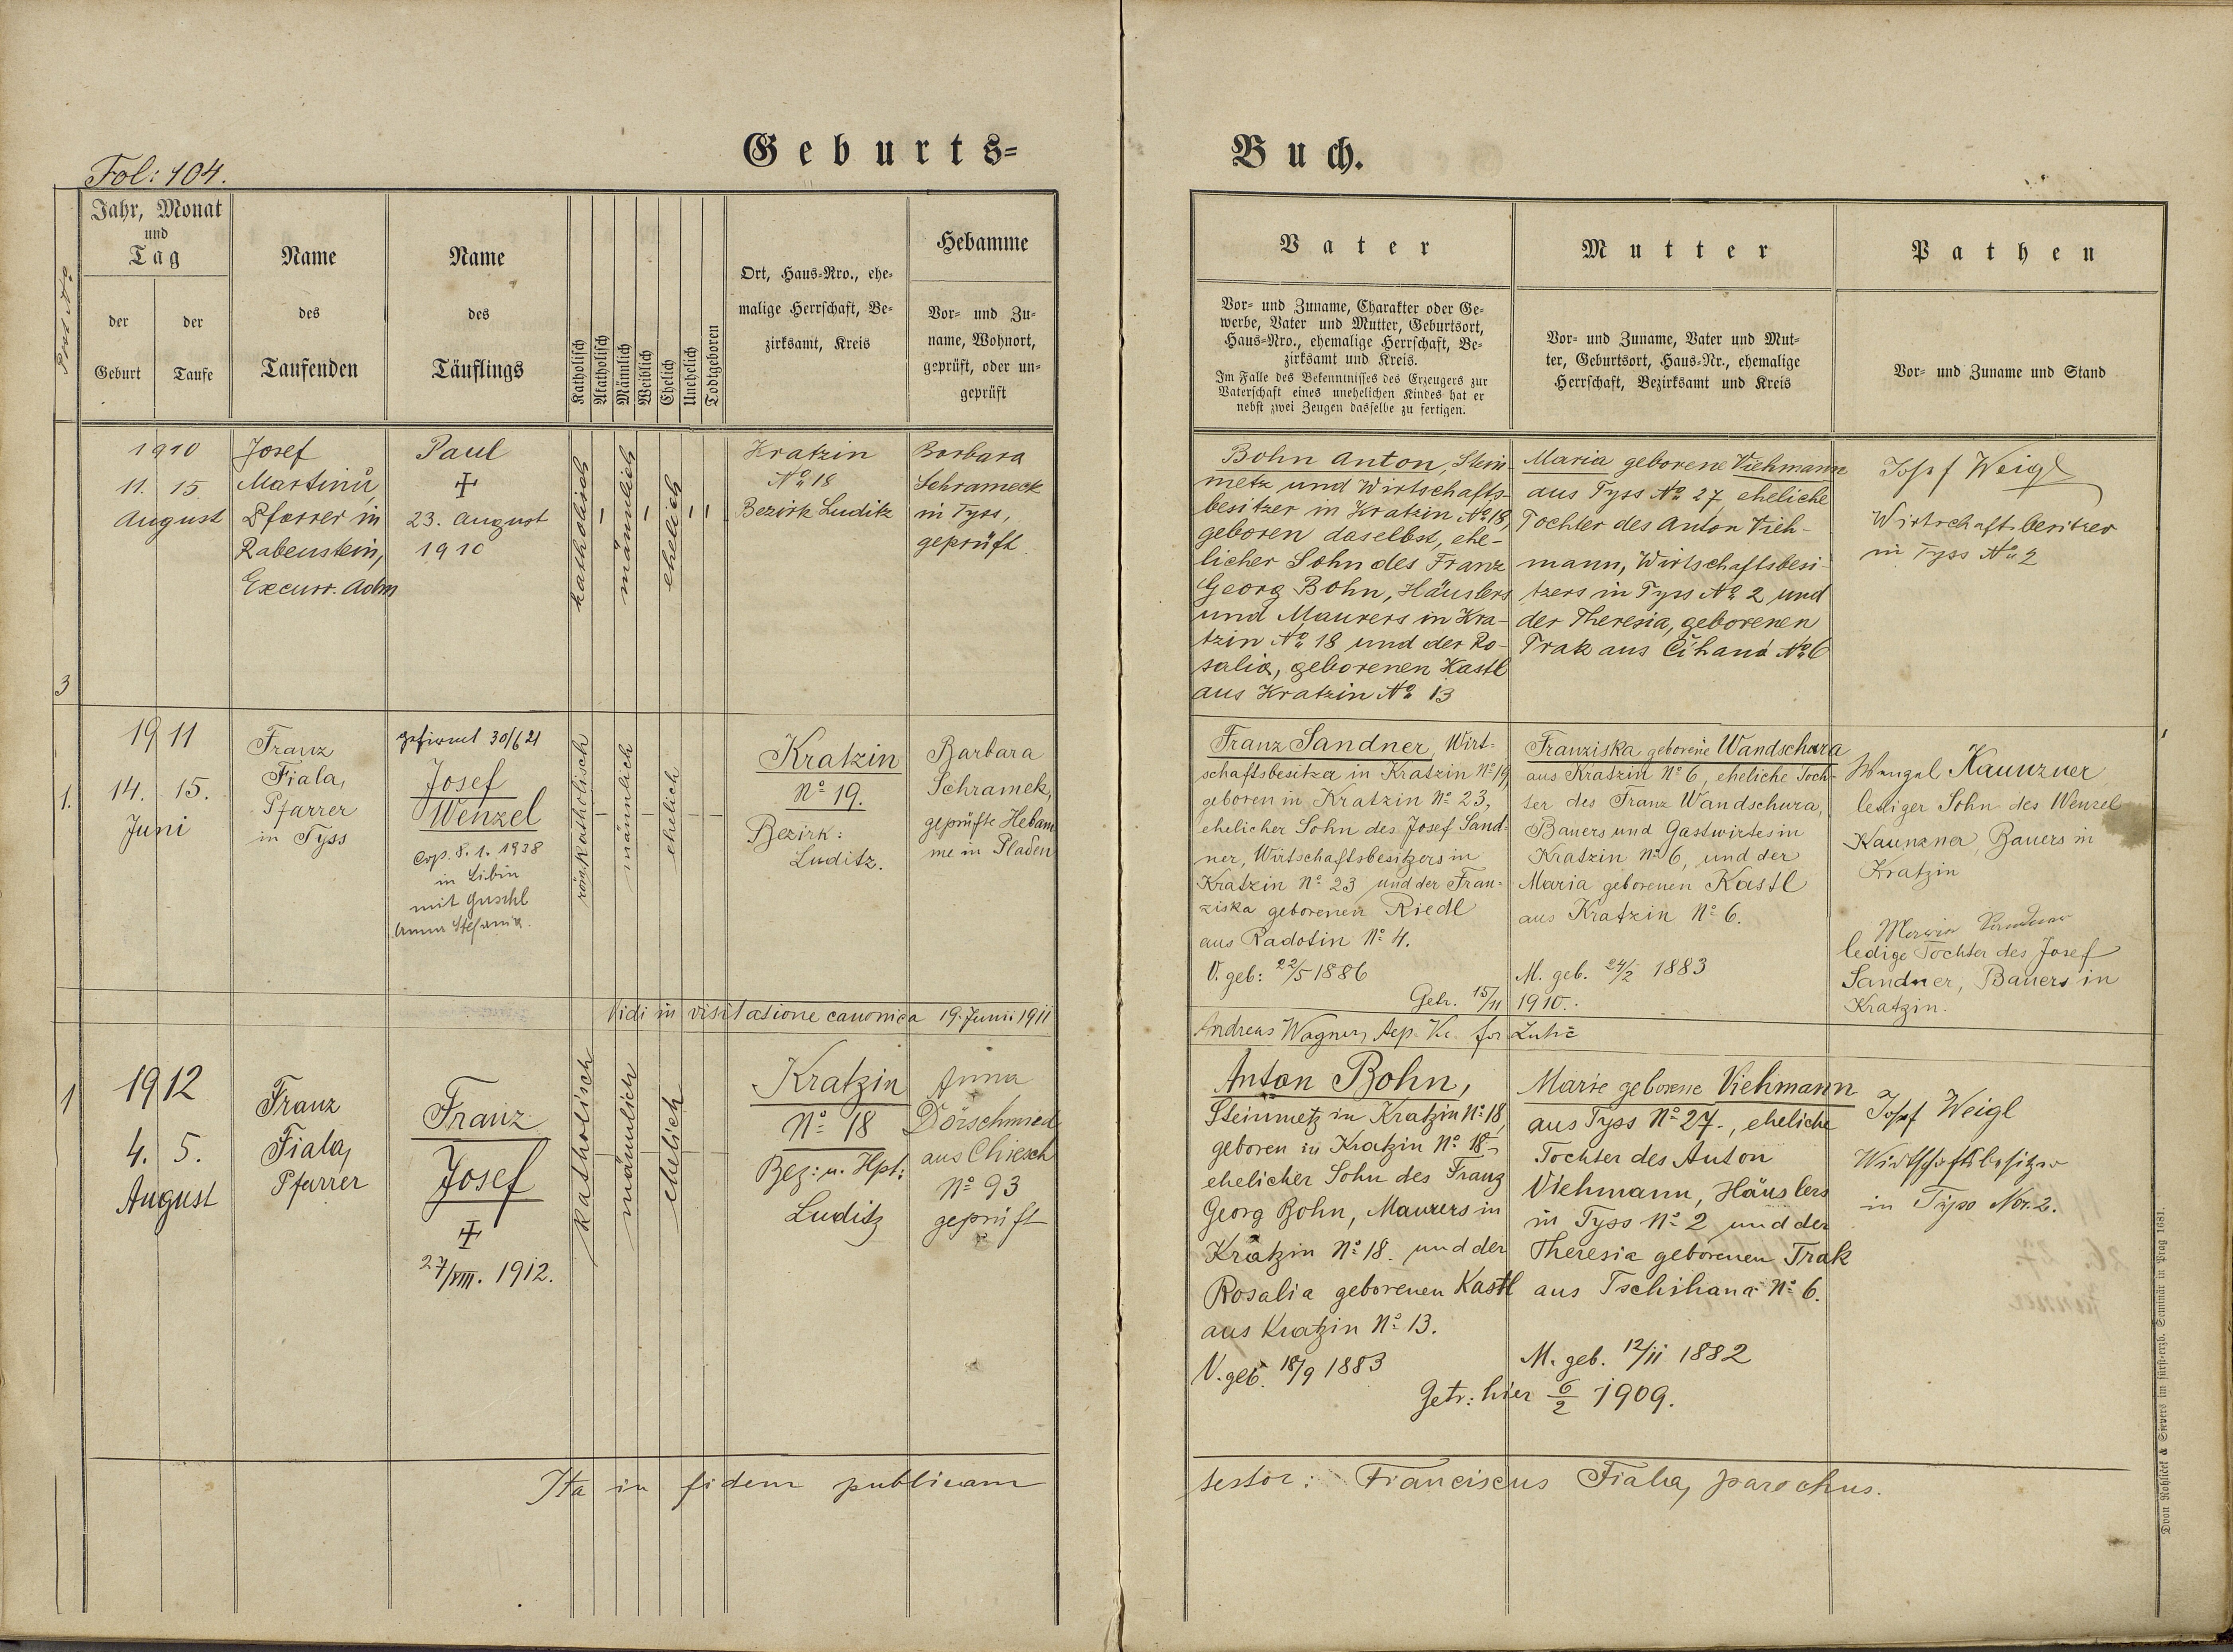 Geburts=
Buch.
Fol: 104.
Jahr, Monat
und
Tag
der
Geburt
der
Taufe
Name
des
Taufenden
Name
des
Täuflings
Katholisch
Akatholisch
Männlich
Weiblich
Ehelich
Unehelich
Todtgeboren
Ort, Haus-Nro., ehe-
malige Herrschaft, Be-
zirksamt, Kreis
Hebamme
Vor- und Zu-
name, Wohnort,
geprüft, oder un-
geprüft
Vater
Vor- und Zuname, Charakter oder Ge-
werbe, Vater und Mutter, Geburtsort,
Haus-Nro., ehemalige Herrschaft, Be-
zirksamt und Kreis.
Im Falle des Bekenntnisses des Erzeugers zur
Vaterschaft eines unehelichen Kindes hat er
nebst zwei Zeugen dasselbe zu fertigen.
Mutter
Vor- und Zuname, Vater und Mut-
ter, Geburtsort, Haus-Nr., ehemalige
Herrschaft, Bezirksamt und Kreis
Pathen
Vor- und Zuname und Stand
3
1910
11. 15.
August
Josef
Martinů,
Pfarrer in
Rabenstein,
Excurr. Adm
Paul
✝
23. August
1910
katholisch
männlich
ehelich
Kratzin
No 18
Bezirk Luditz
Barbara
Schrameck
in Tyss,
geprüft.
Bohn Anton, Stein-
metz und Wirtschafts-
besitzer in Kratzin No 18,
geboren daselbst, ehe-
licher Sohn des Franz
Georg Bohn, Häuslers
und Maurers in Kra-
tzin No 18 und der Ro-
salia, geborenen Kastl
aus Kratzin No 13
Maria geborene Viehmann
aus Tyss No 27, eheliche
Tochter des Anton Vieh-
mann, Wirtschaftsbesi-
tzers in Tyss No 2 und
der Theresia, geborenen
Trak aus Čihaná No 6
Josef Weigl
Wirtschaftsbesitzer
in Tyss No 2
1.
1911
14. 15.
Juni
Franz
Fiala,
Pfarrer
in Tyss
gefirmt 30/6 21
Josef
Wenzel
Cop. 8. 1. 1938
in Libin
mit Guschl
Anna Stefania.
röm. katholisch
männlich
ehelich
Kratzin
No 19.
Bezirk:
Luditz.
Barbara
Schramek,
geprüfte Hebam
me in Pladen
Franz Sandner, Wirt-
schaftsbesitzer in Kratzin No 19,
geboren in Kratzin No 23,
ehelicher Sohn des Josef Sand-
ner, Wirtschaftsbesitzers in
Kratzin No 23 und der Fran-
ziska geborenen Riedl
aus Radotin No 4.
V. geb: 22/5 1886
Franziska geborene Wandschura
aus Kratzin No 6, eheliche Toch-
ter des Franz Wandschura,
Bauers und Gastwirtes in
Kratzin No 6, und der
Maria geborenen Kastl
aus Kratzin No 6.
M. geb. 24/2 1883
Getr. 15/11 1910.
Wenzel Kaunzner
lediger Sohn des Wenzel
Kaunzner, Bauers in
Kratzin
Maria Sandner
ledige Tochter des Josef
Sandner, Bauers in
Kratzin.
Vidi in visitatione canonica 19. Junii 1911
Andreas Wagner,
1
1912
4. 5.
August
Franz
Fiala,
Pfarrer
Franz
Josef
✝
27/VIII. 1912.
katholisch
männlich
ehelich
Kratzin
No 18
Bez: u. Hpt:
Luditz
Anna
Dörschmied
aus Chiesch
No 93
geprüft
Anton Bohn,
Steinmetz in Kratzin No 18,
geboren in Kratzin No 18-
ehelicher Sohn des Franz
Georg Bohn, Maurers in
Kratzin No 18. und der
Rosalia geborenen Kastl
aus Kratzin No 13.
V. geb. 18/9 1883
Marie geborene Viehmann
aus Tyss No 27., eheliche
Tochter des Anton
Viehmann, Häuslers
in Tyss No 2 und der
Theresia geborenen Trak
aus Tschihana No 6.
M. geb. 12/11 1882
Getr: hier 6/2 1909.
Josef Weigl
Wirtschaftsbesitzer
in Tyss Nro. 2.
Ita in fidem publicam
testor: Franciscus Fiala, parochus.
Druck Rohlíček & Sievers im fürst-erzb. Seminär in Prag 1681.